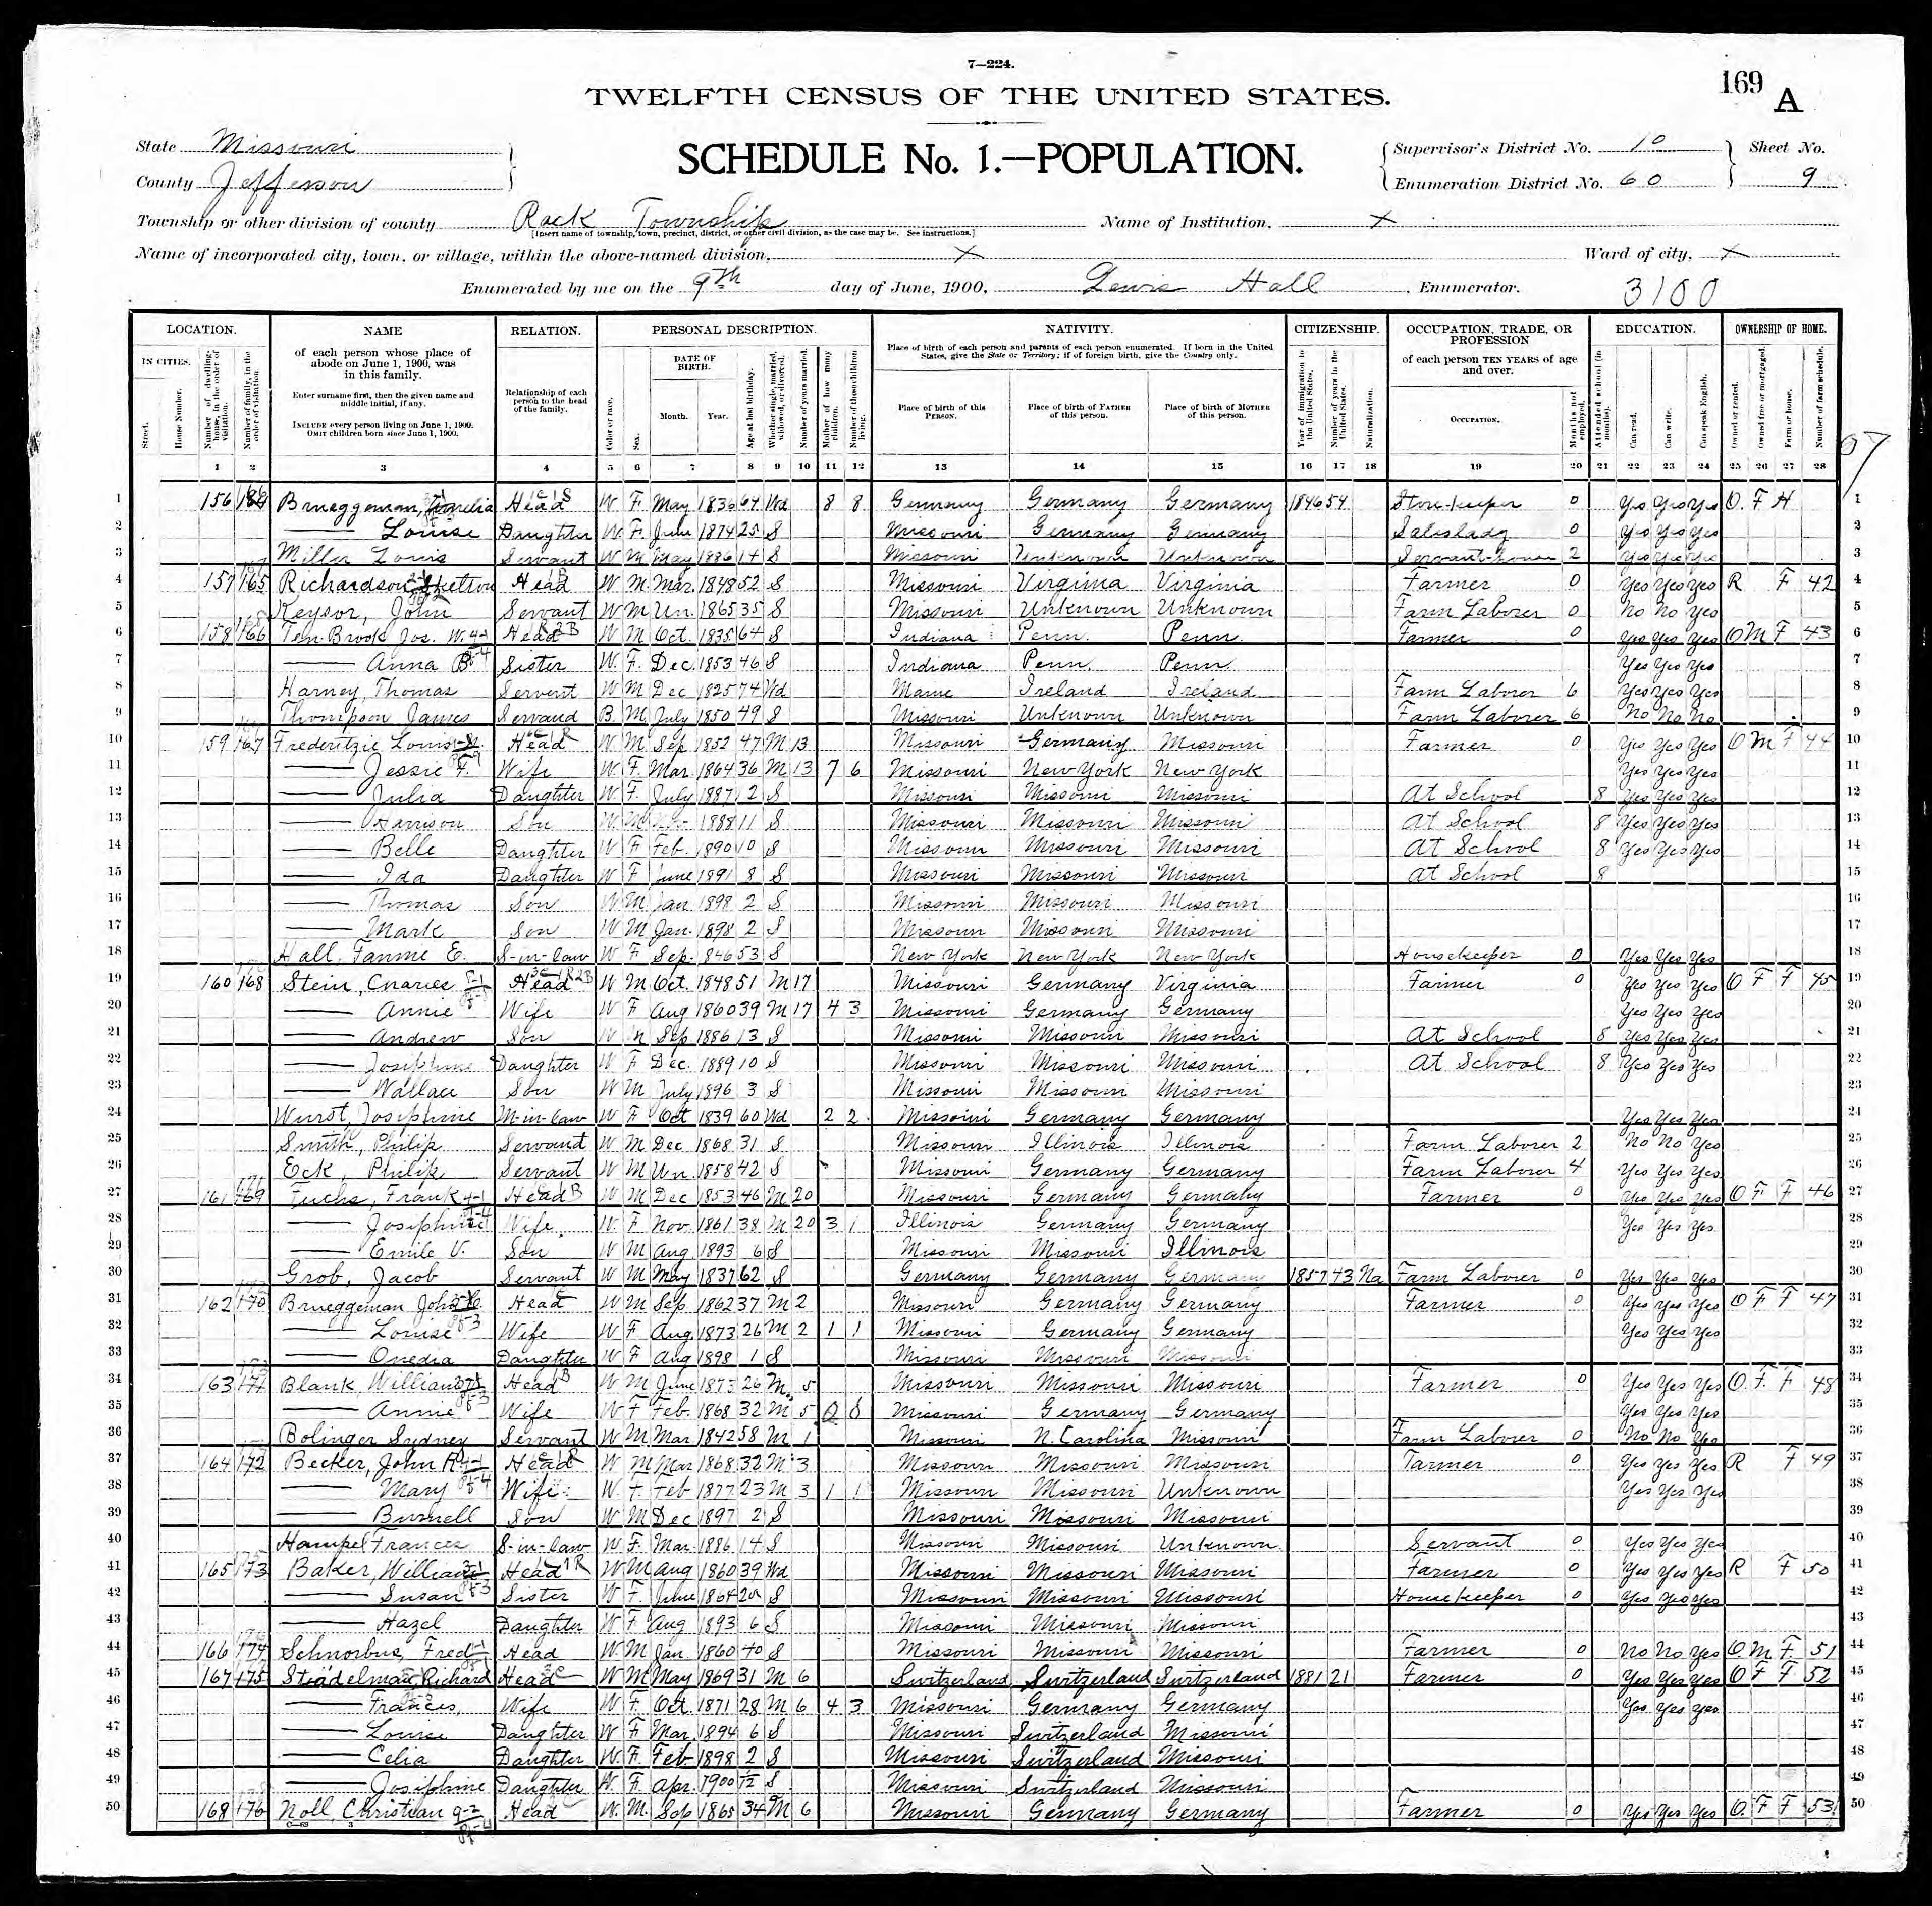 7—224.
TWELFTH CENSUS OF THE UNITED STATES.
169 A
State Missouri
County Jefferson
SCHEDULE No. 1.—POPULATION.
Supervisor's District No. 10
Enumeration District No. 60
Sheet No. 9
Township or other division of county Rock Township Name of Institution, X
[Insert name of township, town, precinct, district, or other civil division, as the case may be. See instructions.]
Name of incorporated city, town, or village, within the above-named division, X Ward of city, X
Enumerated by me on the 9th day of June, 1900, Lewis Hall, Enumerator. 3100
LOCATION. NAME RELATION. PERSONAL DESCRIPTION. NATIVITY. CITIZENSHIP. OCCUPATION, TRADE, OR PROFESSION EDUCATION. OWNERSHIP OF HOME.
IN CITIES. Street. House Number. Number of dwelling-house, in the order of visitation. Number of family, in the order of visitation.
of each person whose place of abode on June 1, 1900, was in this family.
Enter surname first, then the given name and middle initial, if any.
INCLUDE every person living on June 1, 1900. OMIT children born since June 1, 1900.
Relationship of each person to the head of the family.
Color or race. Sex. DATE OF BIRTH. Month. Year. Age at last birthday. Whether single, married, widowed, or divorced. Number of years married. Mother of how many children. Number of these children living.
Place of birth of each person and parents of each person enumerated. If born in the United States, give the State or Territory; if of foreign birth, give the Country only.
Place of birth of this PERSON. Place of birth of FATHER of this person. Place of birth of MOTHER of this person.
Year of immigration to the United States. Number of years in the United States. Naturalization.
of each person TEN YEARS of age and over.
OCCUPATION. Months not employed.
Attended school (in months). Can read. Can write. Can speak English.
Owned or rented. Owned free or mortgaged. Farm or house. Number of farm schedule.
1 2 3 4 5 6 7 8 9 10 11 12 13 14 15 16 17 18 19 20 21 22 23 24 25 26 27 28
1 156 Brueggeman, Head W F May 1836 64 Wd 8 8 Germany Germany Germany 1846 54 Store-keeper 0 Yes Yes Yes O F H 1
2 Louise Daughter W F June 1874 25 S Missouri Germany Germany Saleslady 0 Yes Yes Yes 2
3 Miller Louis Servant W M May 1886 14 S Missouri Unknown Unknown Servant-house 2 Yes Yes Yes 3
4 157 165 Richardson Head W M Mar. 1848 52 S Missouri Virginia Virginia Farmer 0 Yes Yes Yes R F 42 4
5 Keysor, John Servant W M Un. 1865 35 S Missouri Unknown Unknown Farm Laborer 0 No No Yes 5
6 158 166 Ten Brook Jos. W. Head W M Oct. 1835 64 S Indiana Penn. Penn. Farmer 0 Yes Yes Yes O M F 43 6
7 Anna B. Sister W. F. Dec. 1853 46 S Indiana Penn. Penn. Yes Yes Yes 7
8 Harney, Thomas Servent W M Dec 1825 74 Wd Maine Ireland Ireland Farm Laborer 6 Yes Yes Yes 8
9 Thompson James Servand B. M. July 1850 49 S Missouri Unknown Unknown Farm Laborer 6 No No No 9
10 159 167 Frederitzie Louis Head W. M. Sep. 1852 47 M 13 Missouri Germany Missouri Farmer 0 Yes Yes Yes O M F 44 10
11 Jessie F. Wife W. F. Mar. 1864 36 M 13 7 6 Missouri New York New York Yes Yes Yes 11
12 Julia Daughter W. F. July 1887 12 S Missouri Missouri Missouri At School 8 Yes Yes Yes 12
13 Harrison Son W. M. Nov. 1888 11 S Missouri Missouri Missouri At School 8 Yes Yes Yes 13
14 Belle Daughter W F Feb. 1890 10 S Missouri Missouri Missouri At School 8 Yes Yes Yes 14
15 Ida Daughter W F June 1891 8 S Missouri Missouri Missouri At School 8 15
16 Thomas Son W M Jan 1898 2 S Missouri Missouri Missouri 16
17 Mark Son W M Jan. 1898 2 S Missouri Missouri Missouri 17
18 Hall. Fannie E. S-in-law W F Sep. 1846 53 S New York New York New York Housekeeper 0 Yes Yes Yes 18
19 160 168 Stein, Charles Head W M Oct. 1848 51 M 17 Missouri Germany Virginia Farmer 0 Yes Yes Yes O F F 45 19
20 Annie Wife W F Aug 1860 39 M 17 4 3 Missouri Germany Germany Yes Yes Yes 20
21 Andrew Son W M Sep 1886 13 S Missouri Missouri Missouri At School 8 Yes Yes Yes 21
22 Josephine Daughter W F Dec. 1889 10 S Missouri Missouri Missouri At School 8 Yes Yes Yes 22
23 Wallace Son W M July 1896 3 S Missouri Missouri Missouri 23
24 Wurst, Josephine M-in-law W F Oct 1839 60 Wd 2 2 Missouri Germany Germany Yes Yes Yes 24
25 Smith, Philip Servand W M Dec 1868 31 S Missouri Illinois Illinois Farm Laborer 2 No No Yes 25
26 Eck, Philip Servant W M Un. 1858 42 S Missouri Germany Germany Farm Laborer 4 Yes Yes Yes 26
27 161 169 Fuchs, Frank Head W M Dec 1853 46 M 20 Missouri Germany Germany Farmer 0 Yes Yes Yes O F F 46 27
28 Josephine Wife W. F. Nov. 1861 38 M 20 3 1 Illinois Germany Germany Yes Yes Yes 28
29 Emile V. Son W M Aug 1893 6 S Missouri Missouri Illinois 29
30 Grob, Jacob Servant W M May 1837 62 S Germany Germany Germany 1857 43 Na Farm Laborer 0 Yes Yes Yes 30
31 162 170 Brueggeman John Head W M Sep 1862 37 M 2 Missouri Germany Germany Farmer 0 Yes Yes Yes O F F 47 31
32 Louise Wife W F Aug. 1873 26 M 2 1 1 Missouri Germany Germany Yes Yes Yes 32
33 Onedia Daughter W F Aug 1898 1 S Missouri Missouri Missouri 33
34 163 171 Blank, William Head W M June 1873 26 M 5 Missouri Missouri Missouri Farmer 0 Yes Yes Yes O. F. F 48 34
35 Annie Wife W F Feb. 1868 32 M 5 0 0 Missouri Germany Germany Yes Yes Yes 35
36 Bolinger Sydney Servant W M Mar 1842 58 M 1 Missouri N. Carolina Missouri Farm Laborer 0 No No Yes 36
37 164 172 Becker, John Head W M Mar 1868 32 M 3 Missouri Missouri Missouri Farmer 0 Yes Yes Yes R F 49 37
38 Mary Wife W. F. Feb 1877 23 M 3 1 1 Missouri Missouri Unknown Yes Yes Yes 38
39 Burnell Son W M Dec 1897 2 S Missouri Missouri Missouri 39
40 Hampel Frances S-in-law W. F. Mar. 1886 14 S Missouri Missouri Unknown. Servant 0 Yes Yes Yes 40
41 165 173 Baker, William Head W M Aug 1860 39 Wd Missouri Missouri Missouri Farmer 0 Yes Yes Yes R F 50 41
42 Susan Sister W F. June 1864 S Missouri Missouri Missouri Housekeeper 0 Yes Yes Yes 42
43 Hazel Daughter W F Aug 1893 6 S Missouri Missouri Missouri 43
44 166 174 Schnorbus, Fred Head W. M Jan. 1860 40 S Missouri Missouri Missouri Farmer 0 No No Yes O. M F. 51 44
45 167 175 Stradelman, Richard Head W M May 1869 31 M 6 Switzerland Switzerland Switzerland 1881 21 Farmer 0 Yes Yes Yes O F F 52 45
46 Frances, Wife W F. Oct. 1871 28 M 6 4 3 Missouri Germany Germany Yes Yes Yes 46
47 Louise Daughter W F Mar. 1894 6 S Missouri Switzerland Missouri 47
48 Celia Daughter W. F. Feb 1898 2 S Missouri Switzerland Missouri 48
49 Josephine Daughter W. F. Apr. 1900 1/12 S Missouri Switzerland Missouri 49
50 168 176 Noll Christian Head W. M. Sep 1865 34 M 6 Missouri Germany Germany Farmer 0 Yes Yes Yes O. F F 53 50